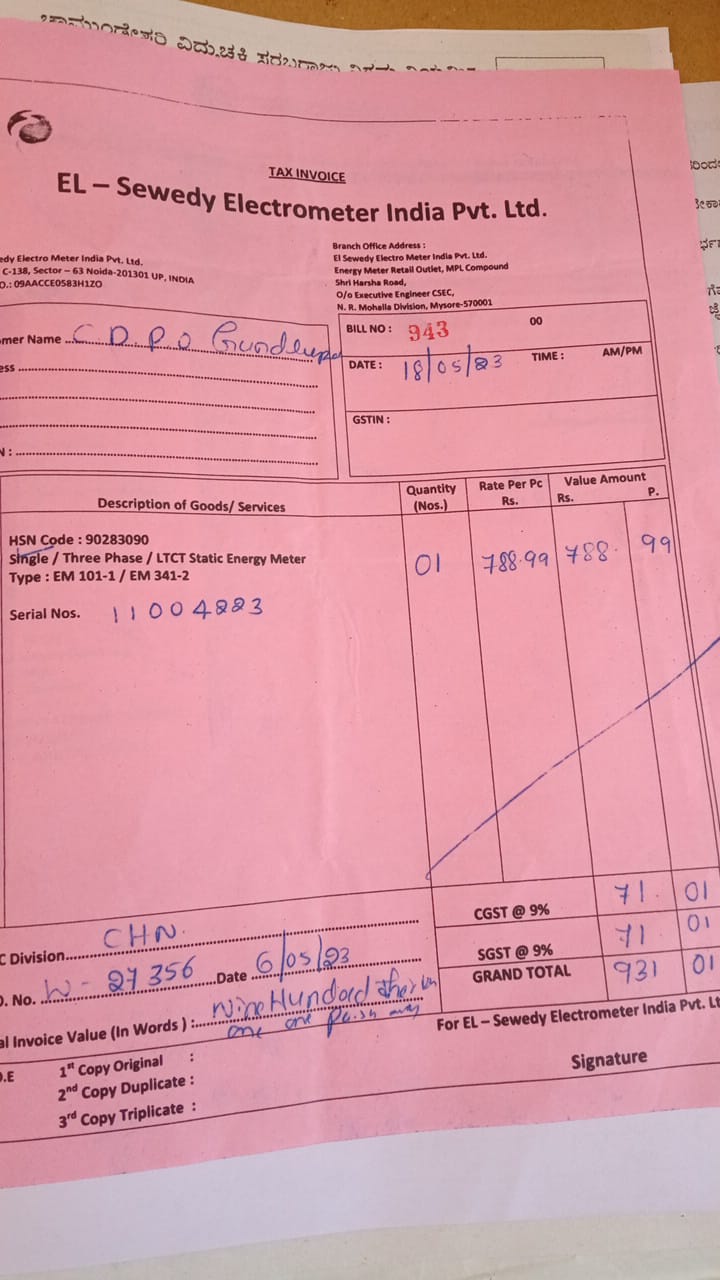 ಚಾಮುಂಡೇಶ್ವರಿ ವಿದ್ಯುಚ್ಛಕ್ತಿ ಸರಬರಾಜು
TAX INVOICE
EL – Sewedy Electrometer India Pvt. Ltd.
edy Electro Meter India Pvt. Ltd.
C-138, Sector – 63 Noida-201301 UP, INDIA
O.: 09AACCE0583H1ZO
Branch Office Address :
El Sewedy Electro Meter India Pvt. Ltd.
Energy Meter Retail Outlet, MPL Compound
Shri Harsha Road,
O/o Executive Engineer CSEC,
N. R. Mohalla Division, Mysore-570001
mer Name C D P O
ess
N :
BILL NO : 943 00
DATE : 18/05/23 TIME : AM/PM
GSTIN :
Description of Goods/ Services Quantity (Nos.) Rate Per Pc Rs. Value Amount Rs. P.
HSN Code : 90283090
Single / Three Phase / LTCT Static Energy Meter 01 788.99 788. 99
Type : EM 101-1 / EM 341-2
Serial Nos. 11004883
CGST @ 9% 71. 01
SGST @ 9% 71 01
GRAND TOTAL 931 01
C Division CHN.
O. No. W - 27356 Date 6/05/23
al Invoice Value (In Words) : Nine Hundred
one one
For EL – Sewedy Electrometer India Pvt. Lt
O.E 1st Copy Original :
2nd Copy Duplicate :
3rd Copy Triplicate :
Signature